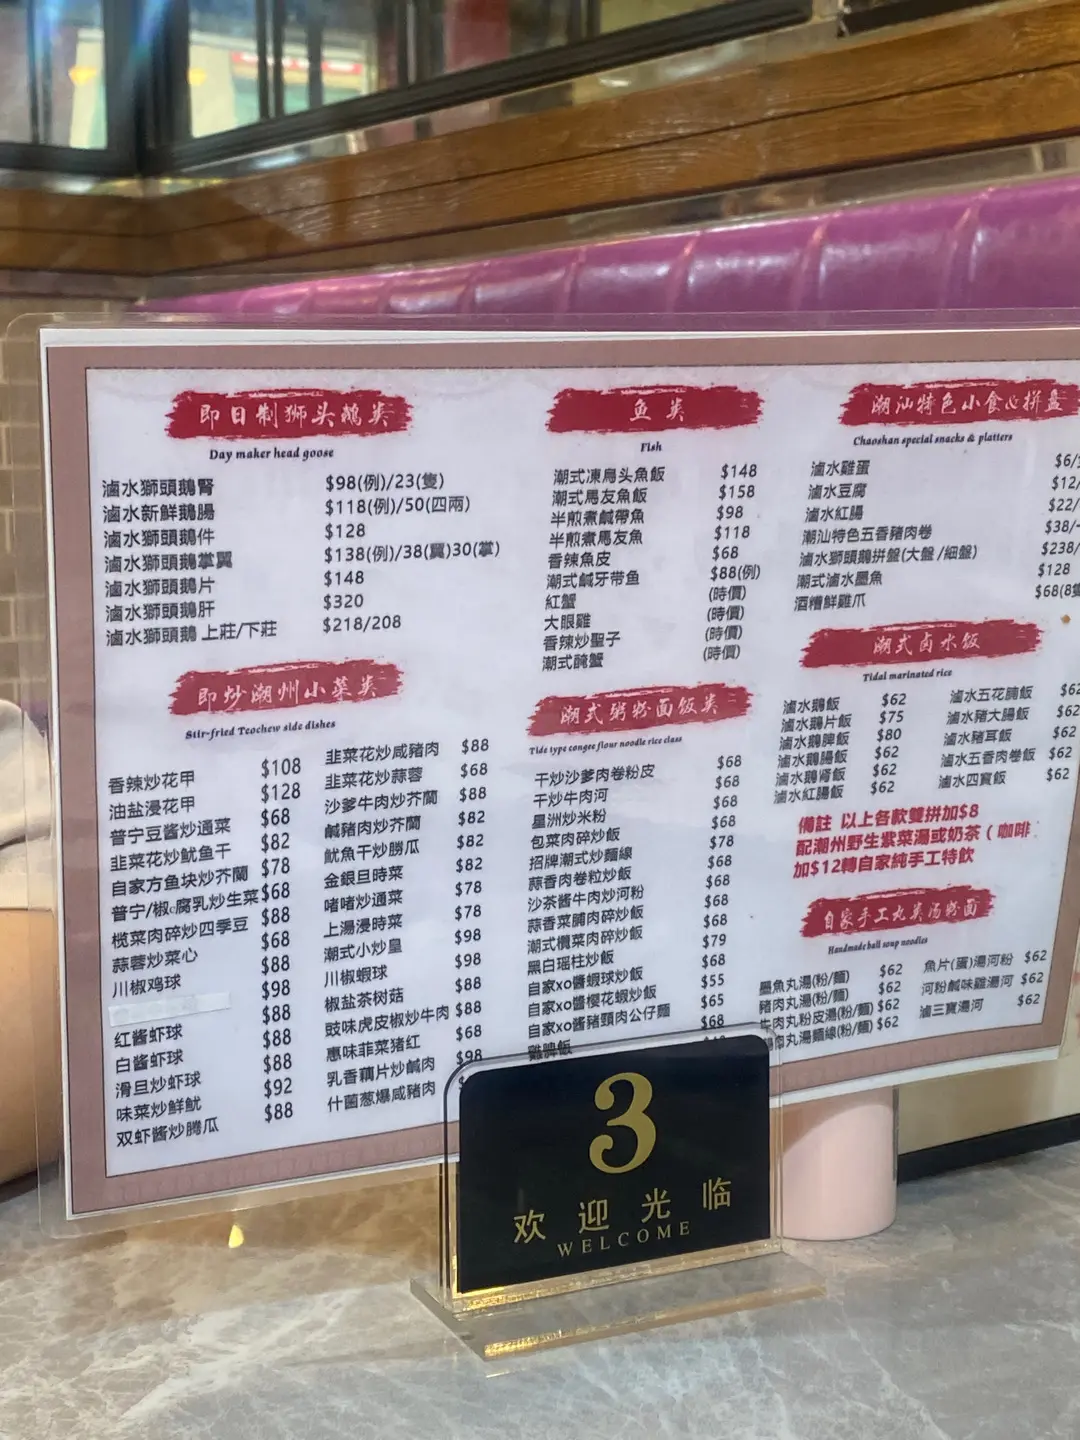 即日制狮头鹅类
Day maker head goose
滷水獅頭鵝腎 $98(例)/23(隻)
滷水新鮮鵝腸 $118(例)/50(四兩)
滷水獅頭鵝件 $128
滷水獅頭鵝掌翼 $138(例)/38(翼)30(掌)
滷水獅頭鵝片 $148
滷水獅頭鵝肝 $320
滷水獅頭鵝 上莊/下莊 $218/208
即炒潮州小菜类
Stir-fried Teochew side dishes
香辣炒花甲 $108
油盐浸花甲 $128
普宁豆酱炒通菜 $68
韭菜花炒魷鱼干 $82
自家方鱼块炒芥蘭 $78
普宁/椒c腐乳炒生菜 $68
榄菜肉碎炒四季豆 $88
蒜蓉炒菜心 $68
川椒鸡球 $88
$98
红酱虾球 $88
白酱虾球 $88
滑旦炒虾球 $88
味菜炒鮮魷 $92
双虾酱炒勝瓜 $88
韭菜花炒咸豬肉 $88
韭菜花炒蒜蓉 $68
沙爹牛肉炒芥蘭 $88
鹹豬肉炒芥蘭 $82
魷魚干炒勝瓜 $82
金銀旦時菜 $82
啫啫炒通菜 $78
上湯浸時菜 $78
潮式小炒皇 $98
川椒蝦球 $98
椒盐茶树菇 $88
豉味虎皮椒炒牛肉 $88
惠味菲菜猪红 $68
乳香藕片炒鹹肉 $98
什菌葱爆咸豬肉
鱼类
Fish
潮式凍烏头魚飯 $148
潮式馬友魚飯 $158
半煎煮鹹帶魚 $98
半煎煮馬友魚 $118
香辣魚皮 $68
潮式鹹牙带鱼 $88(例)
紅蟹 (時價)
大眼雞 (時價)
香辣炒聖子 (時價)
潮式醃蟹 (時價)
潮式粥粉面饭类
Tide type congee flour noodle rice class
干炒沙爹肉卷粉皮 $68
干炒牛肉河 $68
星洲炒米粉 $68
包菜肉碎炒飯 $68
招牌潮式炒麵線 $78
蒜香肉卷粒炒飯 $68
沙茶醬牛肉炒河粉 $68
蒜香菜脯肉碎炒飯 $68
潮式欖菜肉碎炒飯 $68
黑白瑶柱炒飯 $79
自家xo醬蝦球炒飯 $68
自家xo醬櫻花蝦炒飯 $55
自家xo醬豬頸肉公仔麵 $65
雞脾飯 $68
潮汕特色小食心拼盘
Chaoshan special snacks & platters
滷水雞蛋 $6/
滷水豆腐 $12/
滷水紅腸 $22/
潮汕特色五香豬肉卷 $38/
滷水獅頭鵝拼盤(大盤/細盤) $238/
潮式滷水墨魚 $128
酒糟鮮雞爪 $68(8隻
潮式卤水饭
Tidal marinated rice
滷水鵝飯 $62
滷水鵝片飯 $75
滷水鵝脾飯 $80
滷水鵝腸飯 $62
滷水鵝腎飯 $62
滷水紅腸飯 $62
滷水五花腩飯 $62
滷水豬大腸飯 $62
滷水豬耳飯 $62
滷水五香肉卷飯 $62
滷水四寶飯 $62
備註 以上各款雙拼加$8
配潮州野生紫菜湯或奶茶(咖啡
加$12轉自家純手工特飲
自家手工丸类汤粉面
Handmade ball soup noodles
墨魚丸湯(粉/麵) $62
豬肉丸湯(粉/麵) $62
牛肉丸粉皮湯(粉/麵) $62
丸湯麵線(粉/麵) $62
魚片(蛋)湯河粉 $62
河粉鹹味雞湯河 $62
滷三寶湯河 $62
3
欢迎光临
WELCOME